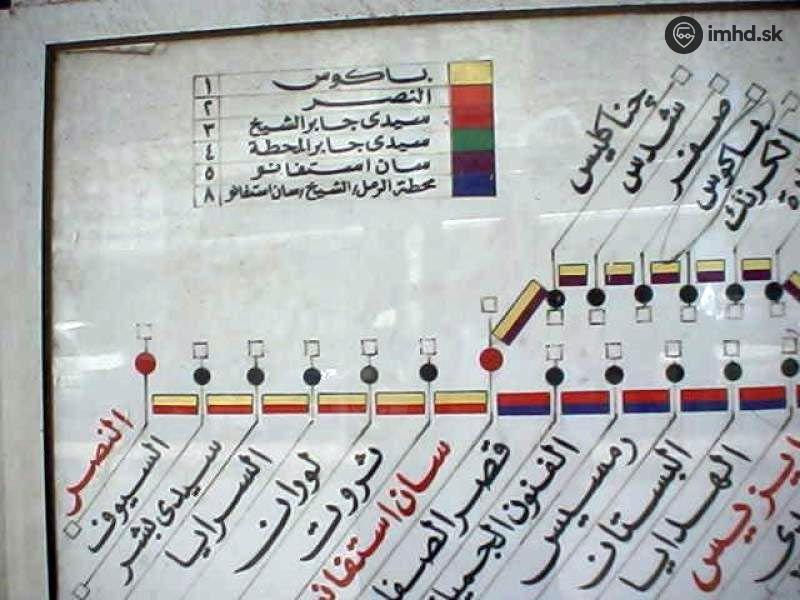 imhd.sk
١ باكوس
٢ النصر
٣ سيدى جابر الشيخ
٤ سيدى جابر المحطة
٥ سان استفانو
٨ محطة الرمل/الشيخ/سان استفانو
جناكليس
شدس
صفر
باكوس
الكرنك
النصر
السيوف
سيدى بشر
السرايا
لوران
ثروت
سان استفانو
قصر الصفا
الفنون الجميلة
رمسيس
البستان
الهدايا
ايزيس